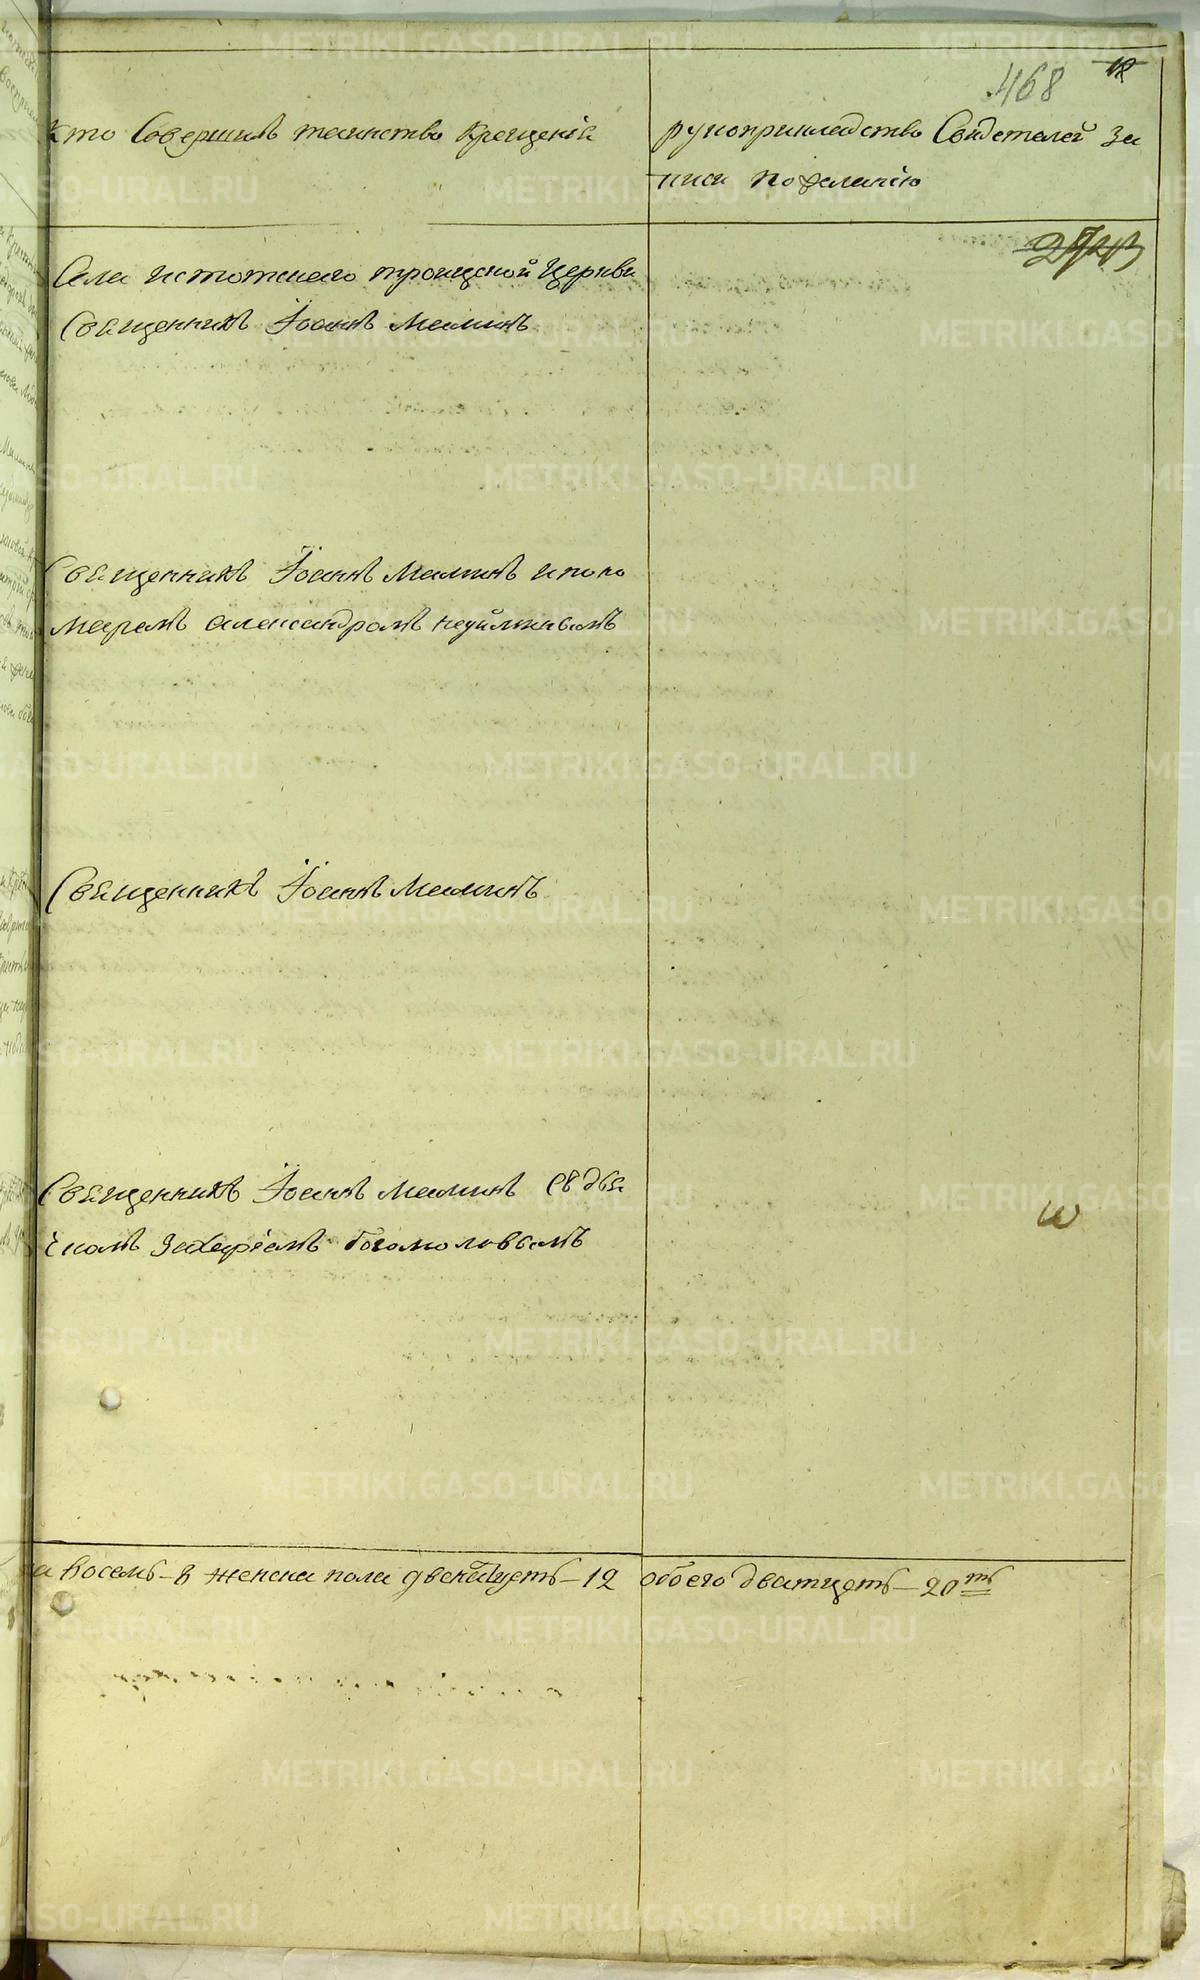 468
кто Совершилъ таинство крещенія
рукоприкладство Свидетелей за
писи по желанію
Села Истокскаго троицкой Церкви
Священникъ Іоаннъ Маминъ
Священникъ Іоаннъ Маминъ и поно
маремъ александромъ
Священникъ Іоаннъ Маминъ
Священникъ Іоаннъ Маминъ съ дья
комъ Захаріемъ богомоловымъ
а восемь - 8 женска пола двенатцеть - 12 обоего дватцеть - 20ть
METRIKI.GASO-URAL.RU